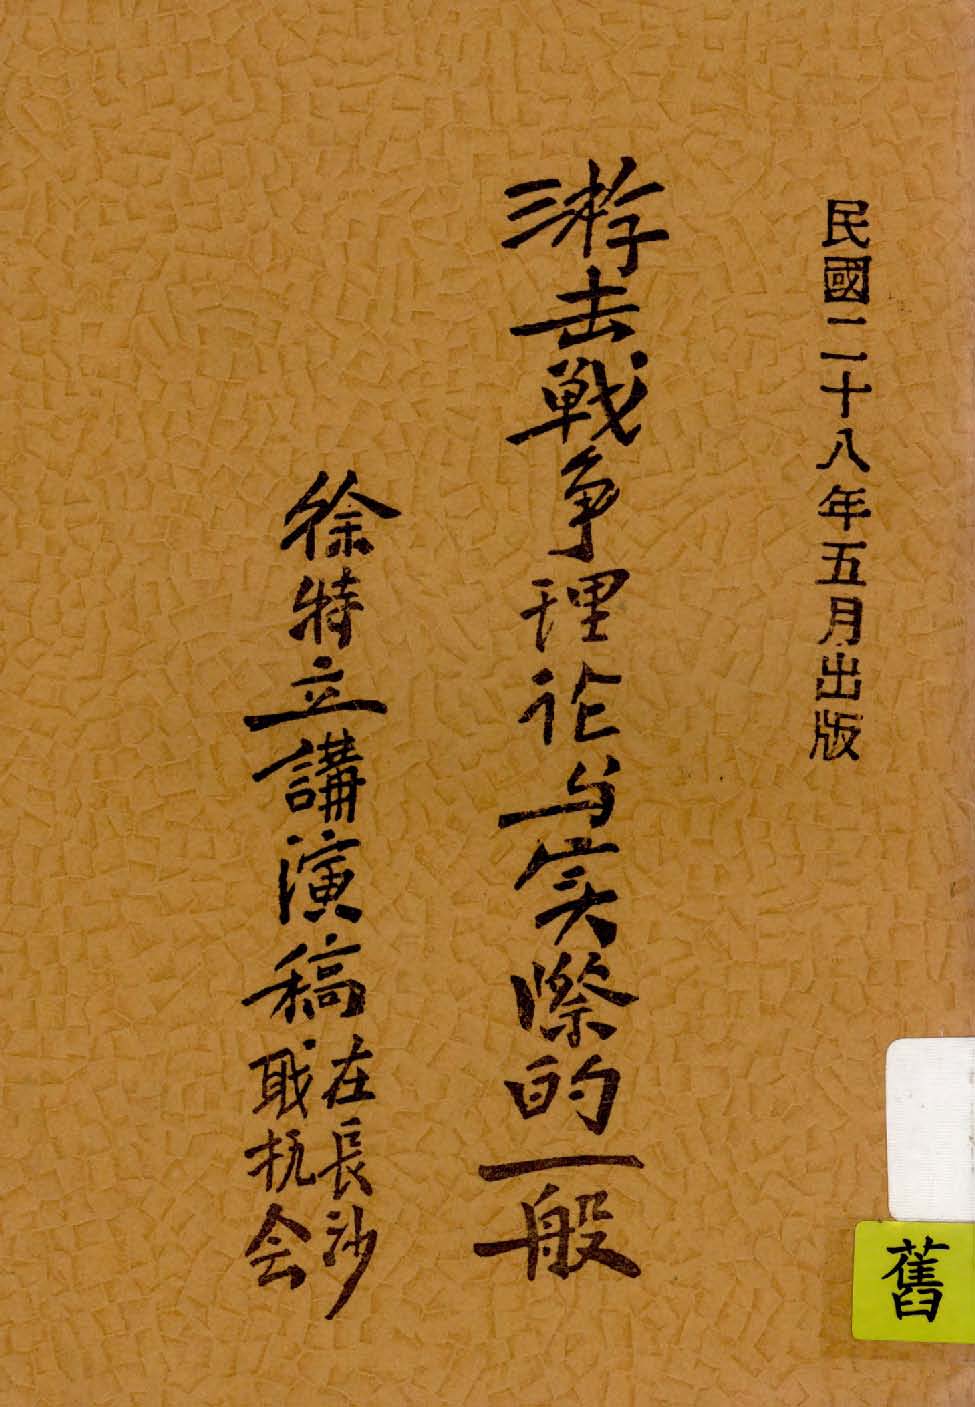 民國二十八年五月出版
游击戦争理论与实際的一般
徐特立講演稿
在長沙
职抗会
舊